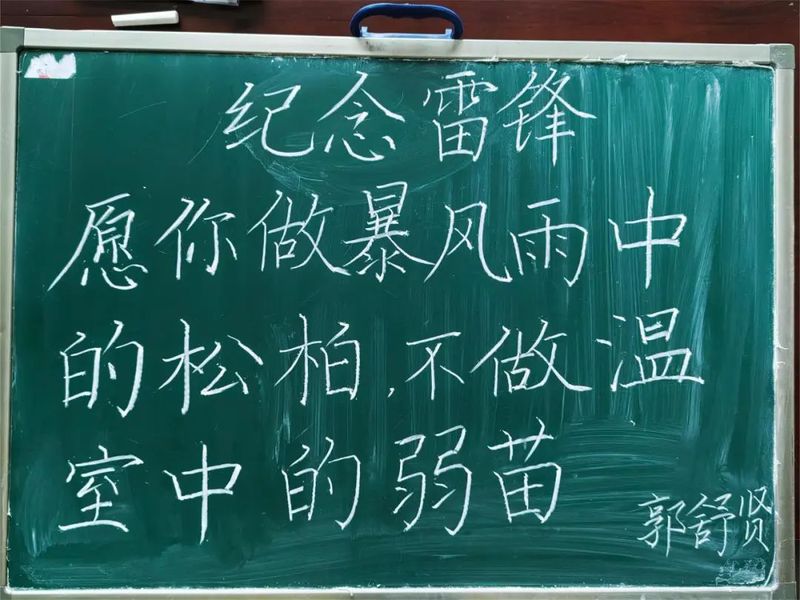 纪念雷锋
愿你做暴风雨中
的松柏,不做温
室中的弱苗
郭舒贤